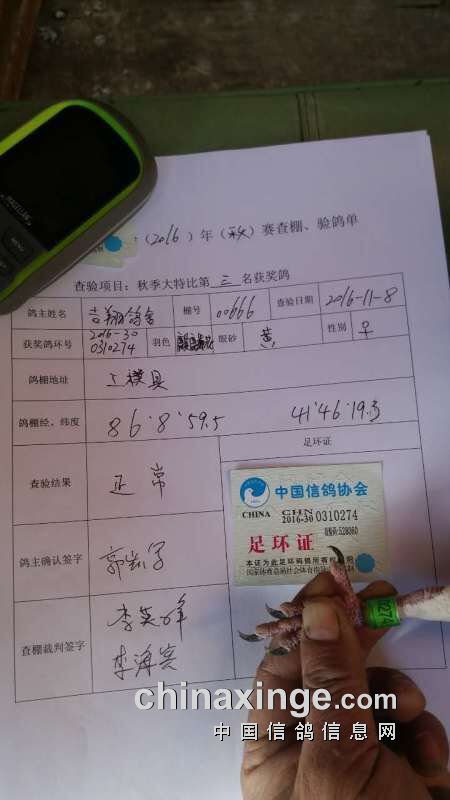 MAGELLAN
MENU
(2016)年(秋)赛查棚、验鸽单
查验项目：秋季大特比第 三 名获奖鸽
鸽主姓名 吉翔鸽舍 棚号 00666 查验日期 2016-11-8
获奖鸽环号 2016-30 0310274 羽色 眼砂 黄 性别 ♀
鸽棚地址 模具
鸽棚经、纬度 86°8'59.5 41°46'19.3
查验结果 正常
足环证
中国信鸽协会
CHINA CHN
2016-30 0310274
足环证
本证为此足环鸽所有权
鸽主确认签字
查棚裁判签字 李英
李海宾
274
chinaxinge.com
中国信鸽信息网